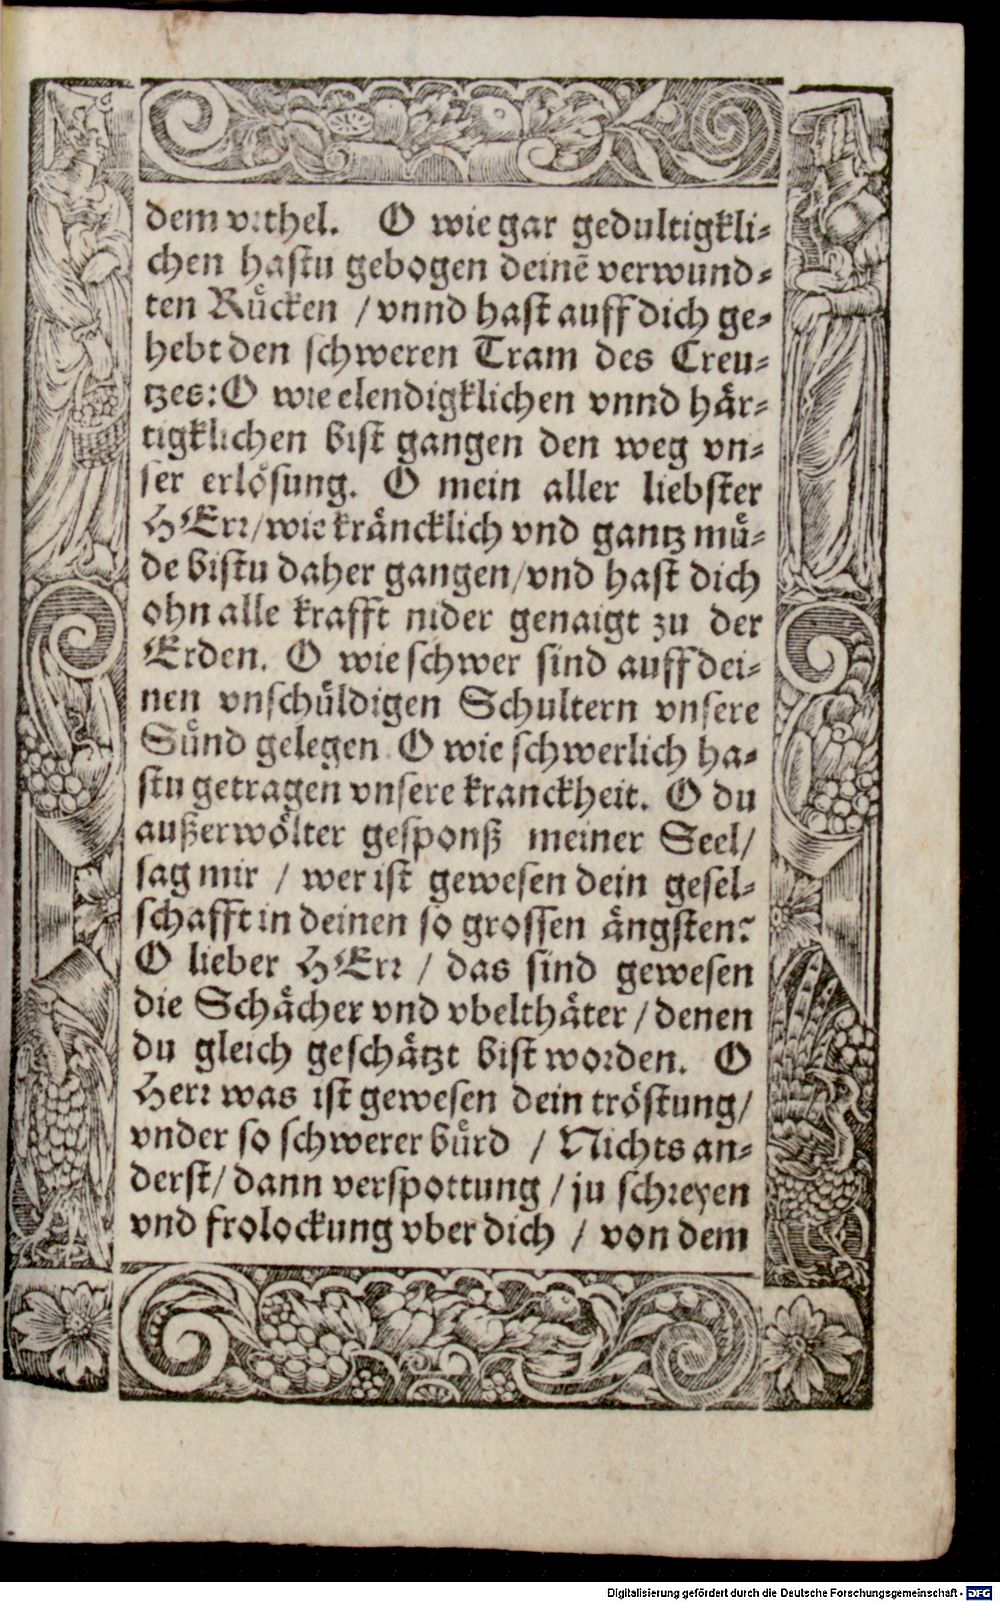 dem vrthel. O wie gar gedultigkli⸗
chen hastu gebogen deinē verwund⸗
ten Ruͤcken / vnnd hast auff dich ge⸗
hebt den schweren Tram des Creu⸗
tzes: O wie elendigklichen vnnd haͤr⸗
tigklichen bist gangen den weg vn⸗
ser erloͤsung. O mein aller liebster
HErr/ wie kraͤncklich vnd gantz muͤ⸗
de bistu daher gangen/ vnd hast dich
ohn alle krafft nider genaigt zu der
Erden. O wie schwer sind auff dei⸗
nen vnschuͤldigen Schultern vnsere
Suͤnd gelegen O wie schwerlich ha⸗
stu getragen vnsere kranckheit. O du
außerwoͤlter gesponß meiner Seel/
sag mir / wer ist gewesen dein gesel⸗
schafft in deinen so grossen aͤngsten?
O lieber HErr / das sind gewesen
die Schaͤcher vnd vbelthaͤter / denen
du gleich geschaͤtzt bist worden. O
Herr was ist gewesen dein troͤstung/
vnder so schwerer buͤrd / Nichts an⸗
derst/ dann verspottung / ju schreyen
vnd frolockung vber dich / von dem
Digitalisierung gefördert durch die Deutsche Forschungsgemeinschaft - DFG